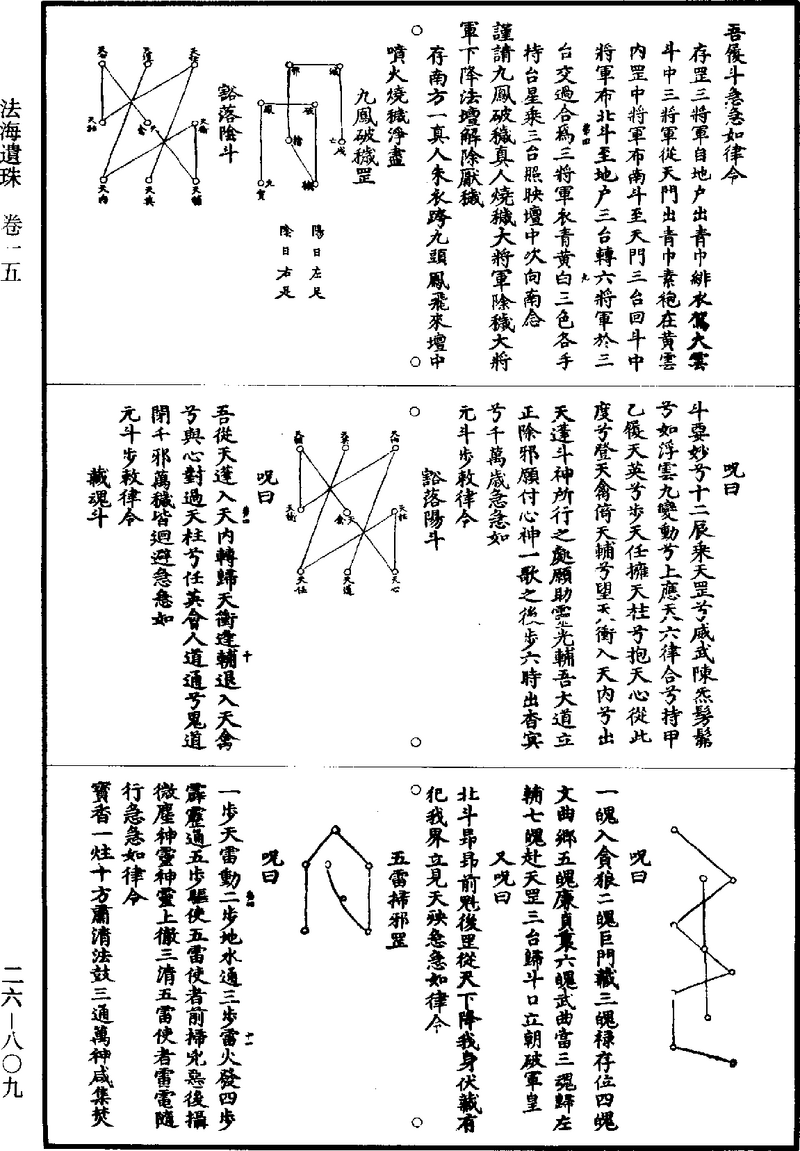 吾履斗急急如律令
存罡三將軍自地户出青巾緋衣駕大雲
斗中三將軍從天門出青巾素袍在黃雲
内罡中將軍布南斗至天門三台回斗中
將軍布北斗至地户三台轉六將軍於三
台交過合爲三將軍衣青黃白三色各手
持台星乘三台照映壇中次向南念
謹請九鳳破穢真人燒穢大將軍除穢大將
軍下降法壇解除厭穢
存南方一真人朱衣跨九頭鳳飛來壇中
噴火燒穢淨盡
九鳳破穢罡
陽日左足
陰日右足
豁落陰斗
天任
天柱
天心
天禽
天内
天英
天輔
咒曰
斗要妙兮十二辰乘天罡兮威武陳炁髣髴
兮如浮雲九變動兮上應天六律合兮持甲
乙履天英兮步天任擁天柱兮抱天心從此
度兮登天禽倚天輔兮望天衝入天内兮出
天蓬斗神所行之處願助靈光輔吾大道立
正除邪願付心神一歌之後步六時出杳冥
兮千萬歲急急如
元斗步敕律令
豁落陽斗
天輔
天英
天内
天衝
天禽
天柱
天任
天蓬
天心
咒曰
吾從天蓬入天内轉歸天衝逢輔退入天禽
兮與心對過天柱兮任英會人道通兮鬼道
閉千邪萬穢皆迴避急急如
元斗步敕律令
藏魂斗
咒曰
一魄入貪狼二魄巨門藏三魄禄存位四魄
文曲鄉五魄廉貞裏六魄武曲當三魂歸左
輔七魄赴天罡三台歸斗口立朝破軍皇
又咒曰
北斗昂昂前魁後罡從天下降我身伏藏有
犯我界立見天殃急急如律令
五雷掃邪罡
咒曰
一步天雷動二步地水通三步雷火發四步
霹靂通五步驅使五雷使者前掃兇惡後攝
微塵神靈神靈上徹三清五雷使者雷電隨
行急急如律令
寶香一炷十方肅清法鼓三通萬神咸集焚
法海遺珠 卷一五
二六—八〇九